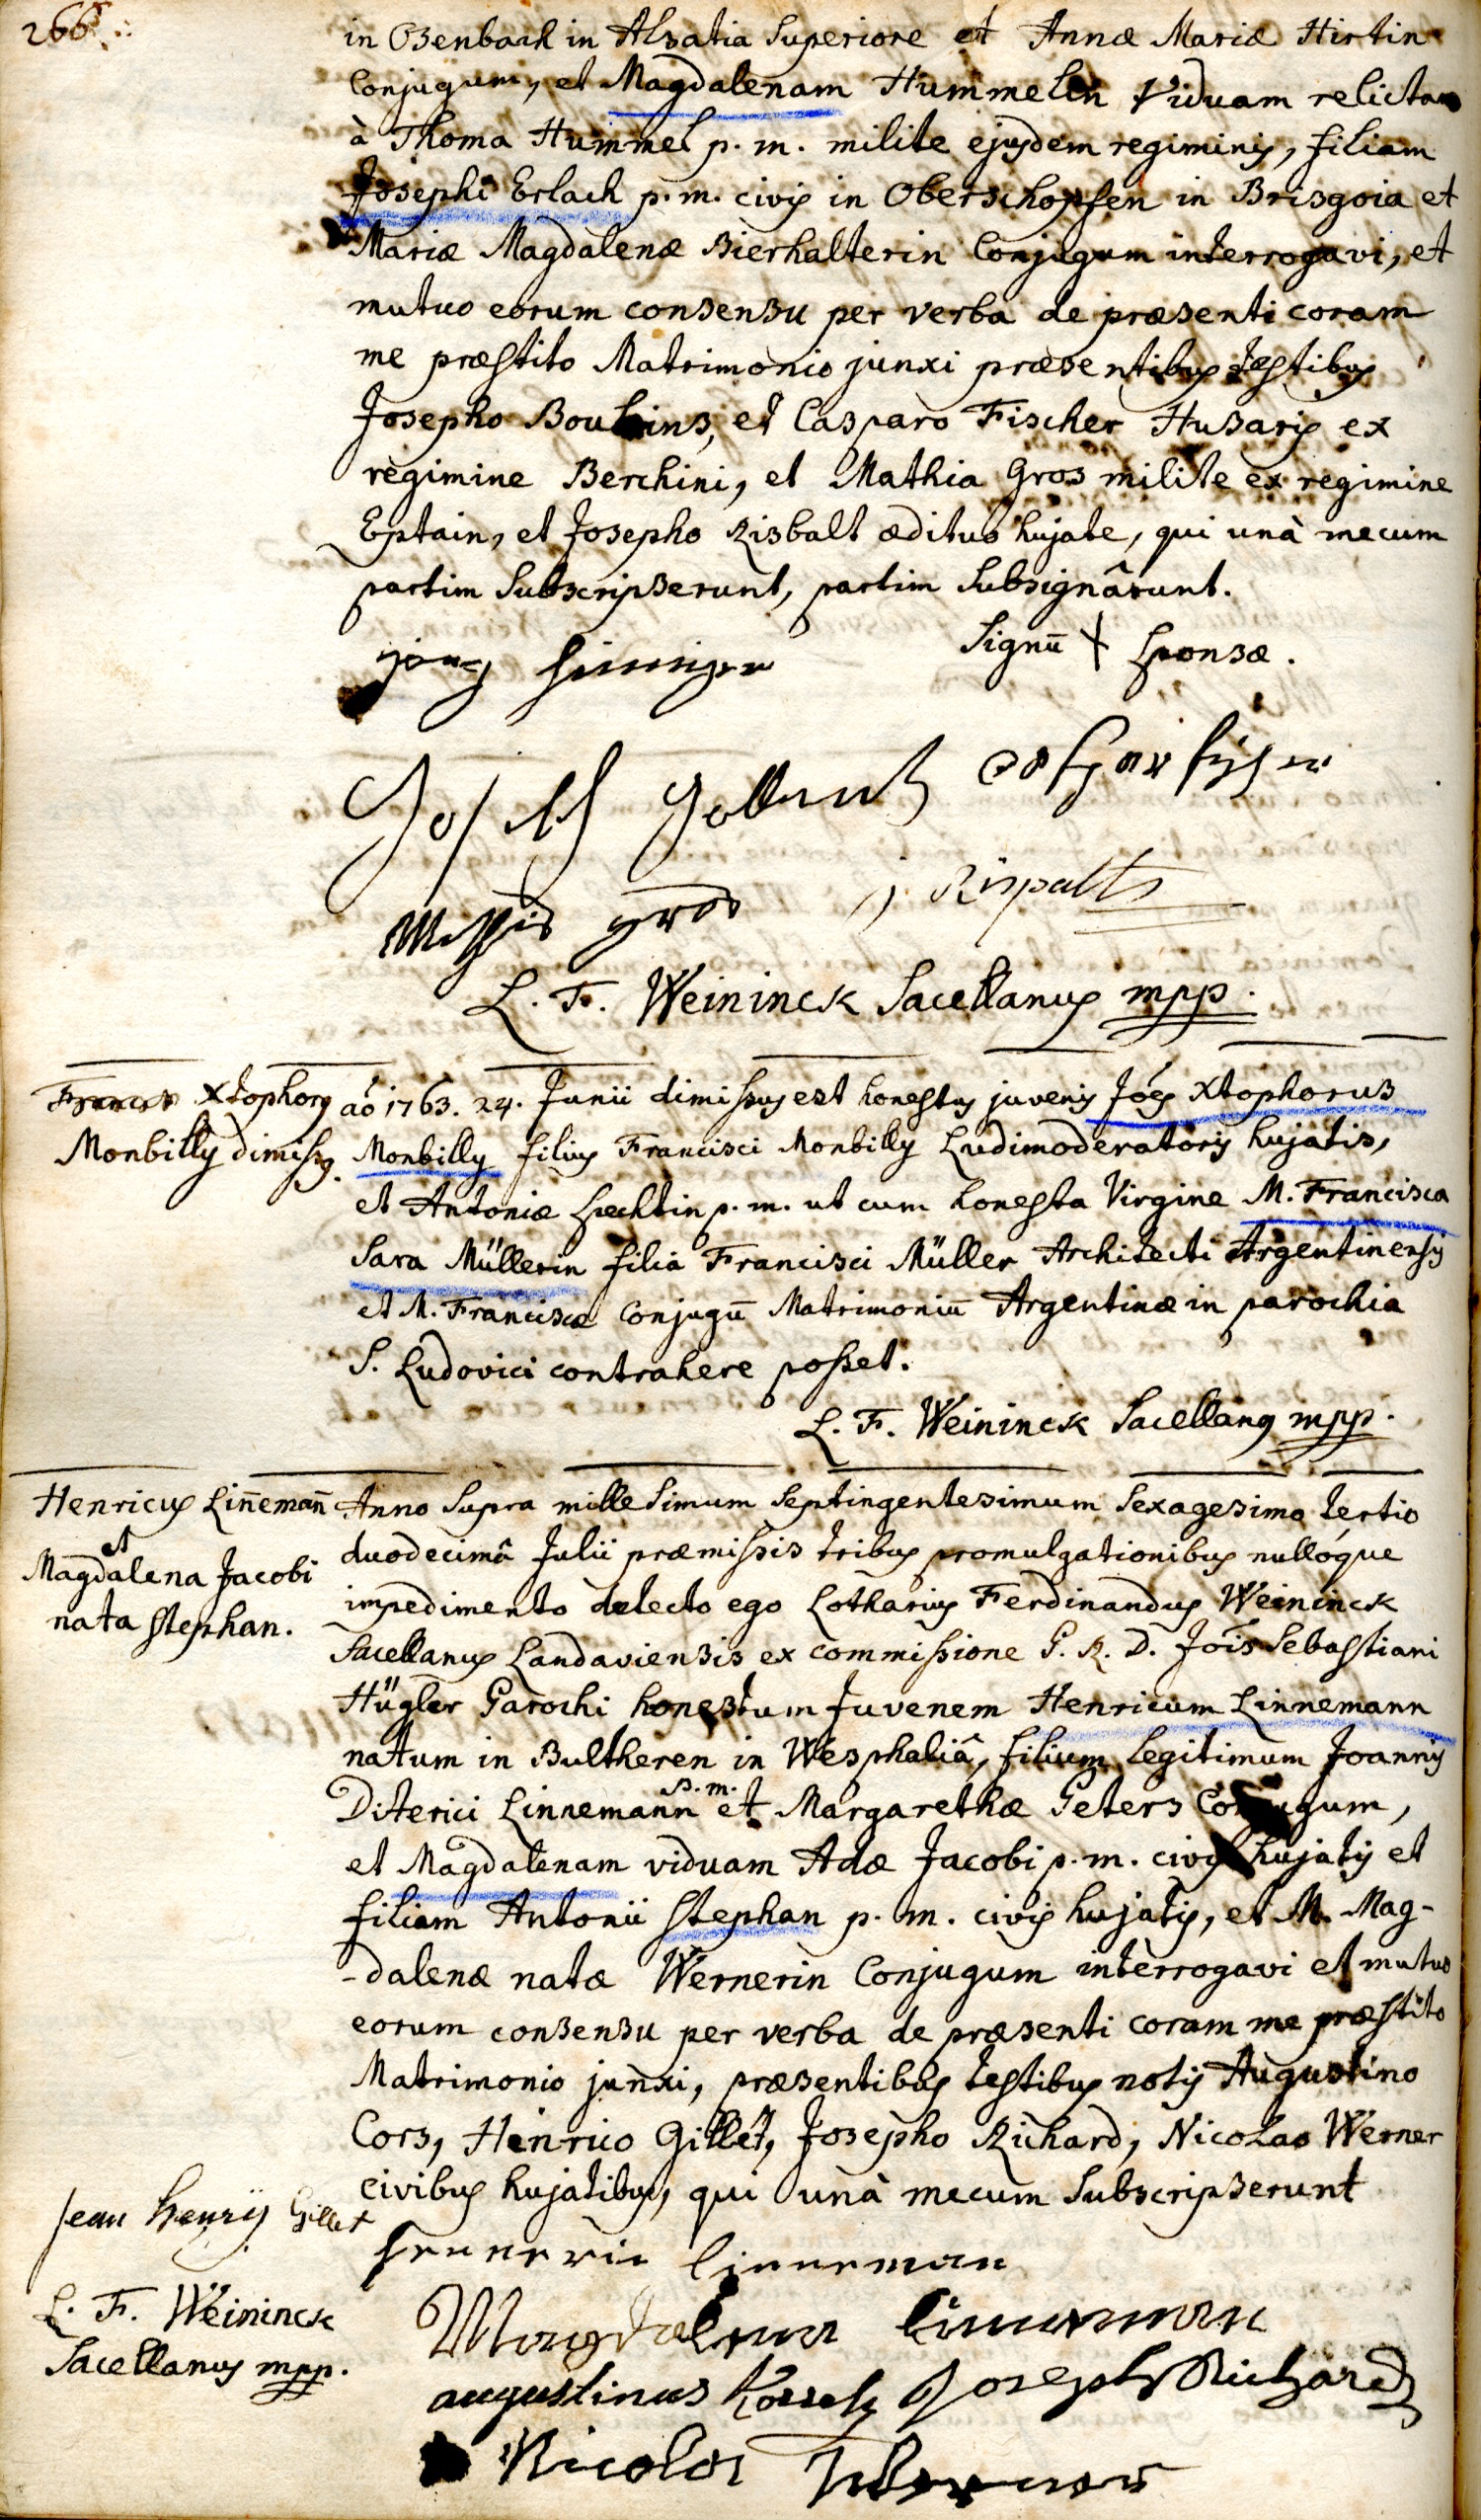 266
in Osenbach in Alsatia Superiore et Annæ Mariæ Hirtin
Conjugum, et Magdalenam Hummelin Viduam relictam
à Thoma Hummel p. m. milite ejusdem regiminis, filiam
Josephi Erlach p. m. civis in Oberschopfen in Brisgoia et
Mariæ Magdalenæ Bierhalterin Conjugum interrogavi, et
mutuo eorum consensu per verba de præsenti coram
me præstito Matrimonio junxi præsentibus testibus
Josepho, et Casparo Fischer Husaris ex
regimine Berchini, et Mathia Gros milite ex regimine
Eptain, et Josepho Risbalt ædituo hujate, qui unà mecum
partim Subscripserunt, partim Subsignârunt.
Signū + Sponsæ.
Joseph
gros j. Rispalts
L. F. Weininck Sacellanus mpp.
Xtophorus
Monbilly dimissus.
aō 1763. 24. Junii dimissus est honestus juvenis Jōes Xtophorus
Monbilly filius Francisci Monbilly Ludimoderatoris hujatis,
et Antoniæ Spechtin p. m. ut cum honesta Virgine M. Francisca
Sara Müllerin filia Francisci Müller Architecti Argentinensis
et M. Franciscæ Conjugū Matrimoniū Argentinæ in parochia
S. Ludovici contrahere posset.
L. F. Weininck Sacellanus mpp.
Henricus Lin̄eman̄
et
Magdalena Jacobi
nata Stephan.
Anno Supra millesimum Septingentesimum Sexagesimo tertio
duodecimâ Julii præmissis tribus promulgationibus nullóque
impedimento detecto ego Lotharius Ferdinandus Weininck
Sacellanus Landaviensis ex commissione P. R. D. Jōis Sebastiani
Hügler Parochi honestum Juvenem Henricum Linnemann
natum in Bultheren in Wesphaliâ, filium legitimum Joannis
Diterici Linnemann p. m. et Margarethæ Peters Conjugum,
et Magdalenam viduam Adæ Jacobi p. m. civis hujatis et
filiam Antonii Stephan p. m. civis hujatis, et M. Mag-
-dalenæ natæ Wernerin Conjugum interrogavi et mutuo
eorum consensu per verba de præsenti coram me præstito
Matrimonio junxi, præsentibus testibus notis Augustino
Cors, Henrico Gillet, Josepho Richard, Nicolao Werner
civibus hujatibus, qui unà mecum Subscripserunt
Jean henrÿ Gillet
linneman
L. F. Weininck
Sacellanus mpp.
Magdalena linneman
augustinus Joseph Richard
Nicolas Werner